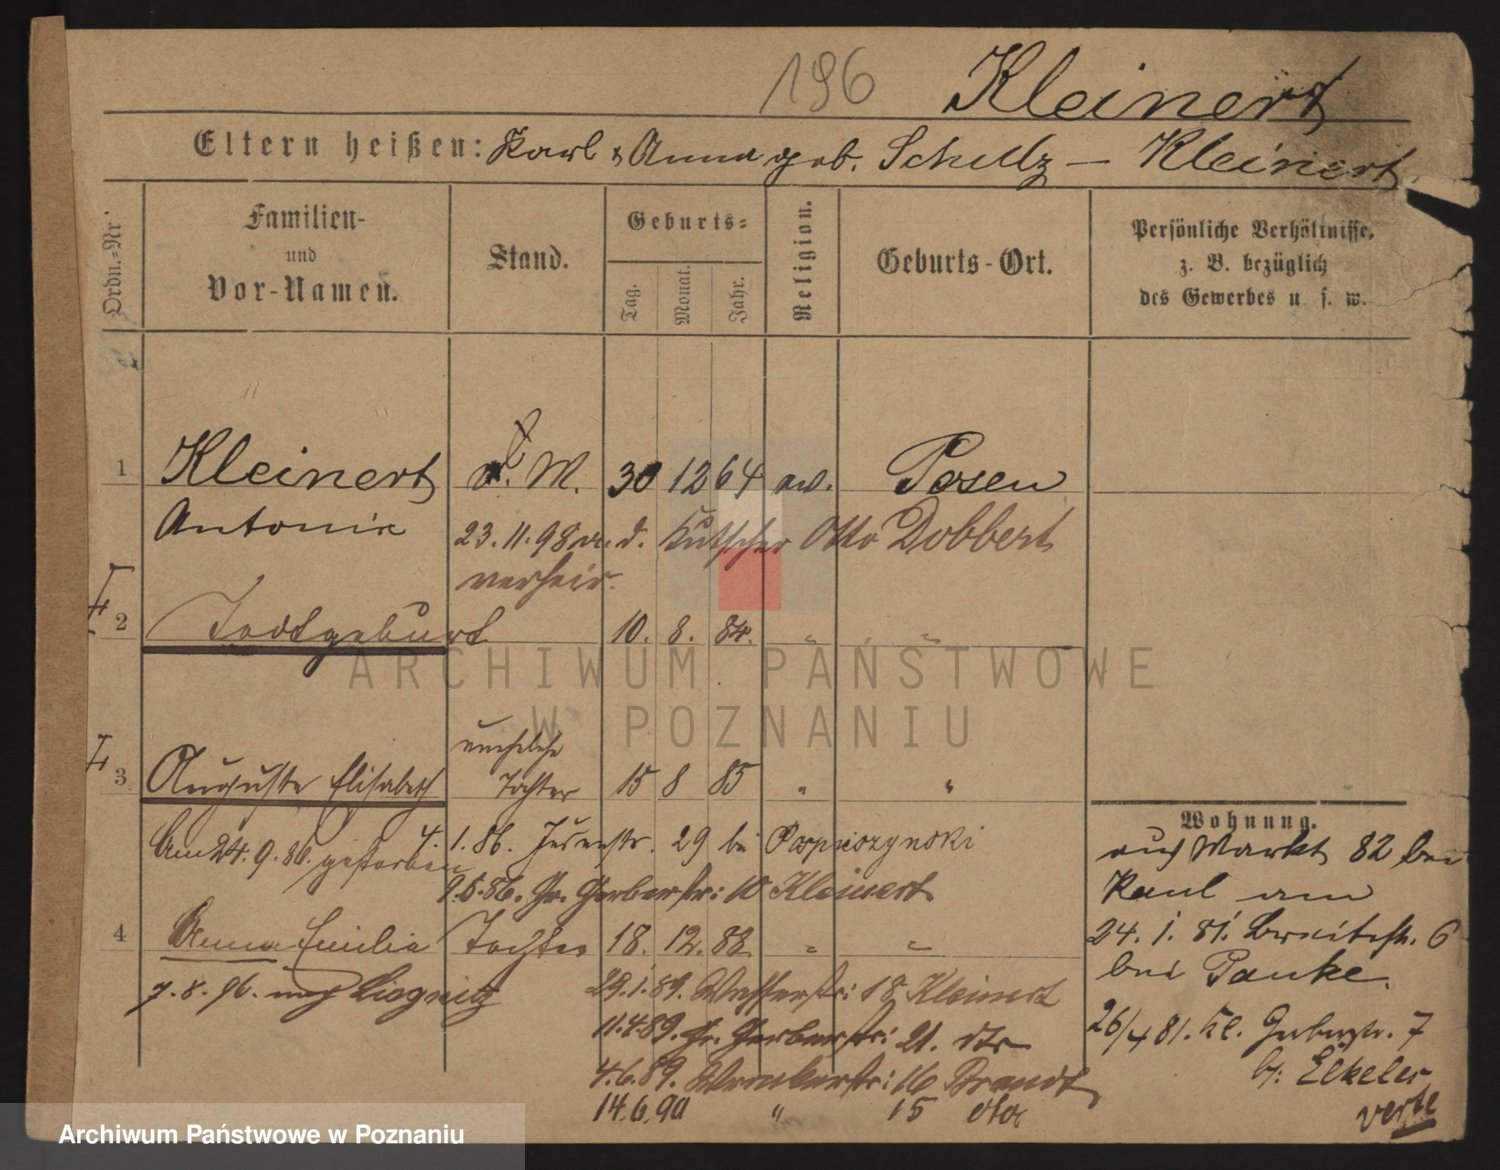 196 Kleinert
Eltern heißen: Karl & Anna geb. Schulz — Kleinert
Ordn.-Nr
Familien-
und
Vor-Namen.
Stand.
Geburts-
Tag.
Monat.
Jahr.
Religion.
Geburts-Ort.
Persönliche Verhältnisse,
z. B. bezüglich
des Gewerbes u. s. w.
1 Kleinert d. M. 30 12 64 ev. Posen
Antonie
23.11.98 m. d. Kutscher Otto Dobbert
verheir.
2 Todtgeburt 10. 8. 84. " "
3 Auguste Elisabeth uneheliche
Tochter 15 8 85 " "
Am 24.9.86. gestorben
4.1.86. Jesuitstr. 29 bei
9.5.86. Gr. Gerberstr: 10 Kleinert
4 Anna Emilie Tochter 18. 12. 88 " "
7.8.96. nach Liegnitz
29.1.89. Wasserstr: 18 Kleinert
11.4.89. Gr. Gerberstr: 21. dto
4.6.89. 16 Brandt
14.6.90 " 15 dto
Wohnung.
Markt 82 bei
Paul am
24.1.81. Breitestr. 6
bei Panke.
26/4 81. Kl. Gerberstr. 7
b:
verte
ARCHIWUM PAŃSTWOWE
W POZNANIU
Archiwum Państwowe w Poznaniu